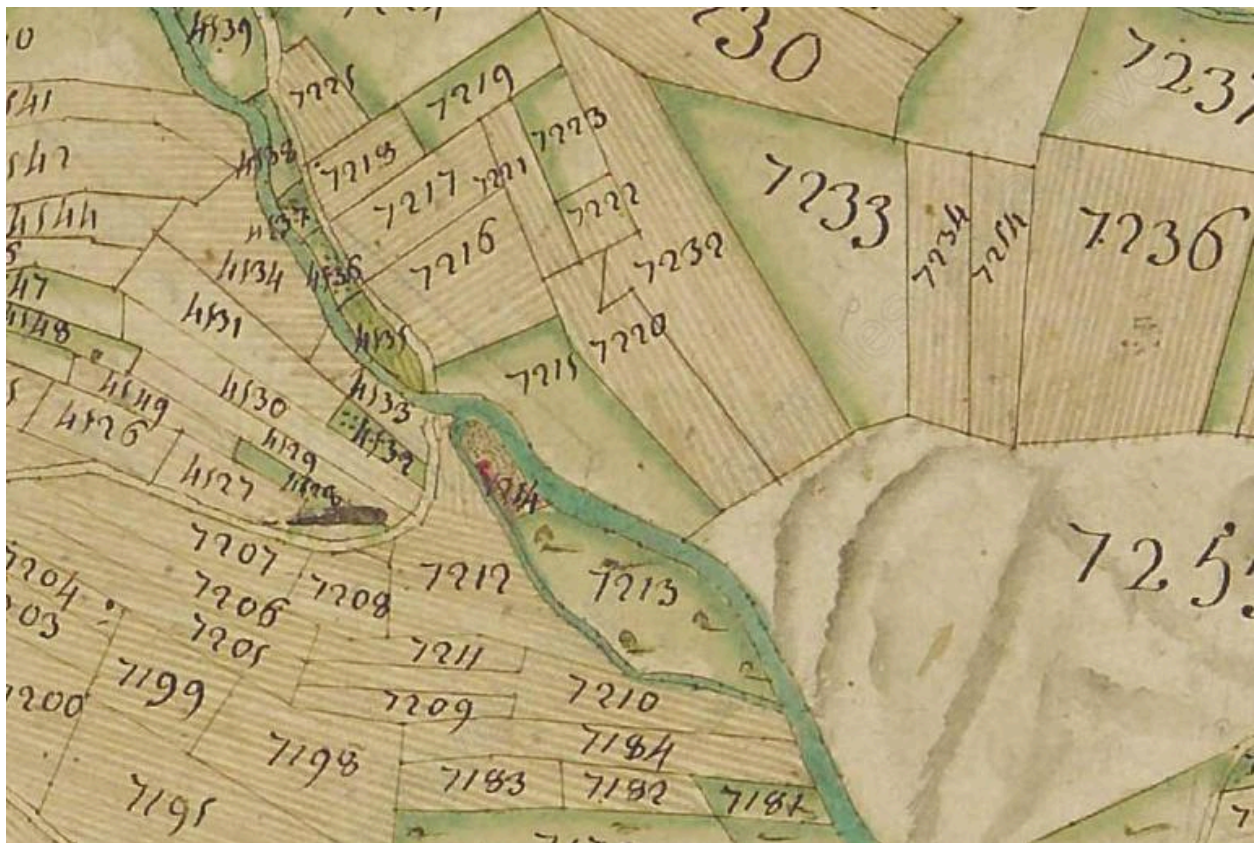 4539
230
7237
7225
7219
4541
7223
4538
7218
4542
7217
7221
7222
7233
7234
7254
7236
4544
4537
7216
7232
4534
4536
47
4548
4531
4535
7220
7215
4549
4530
4533
4532
4526
4529
4527
7214
7207
7212
7213
7255
7204
7206
7208
03
7205
7211
7199
7210
7200
7209
7184
7198
7183
7182
7195